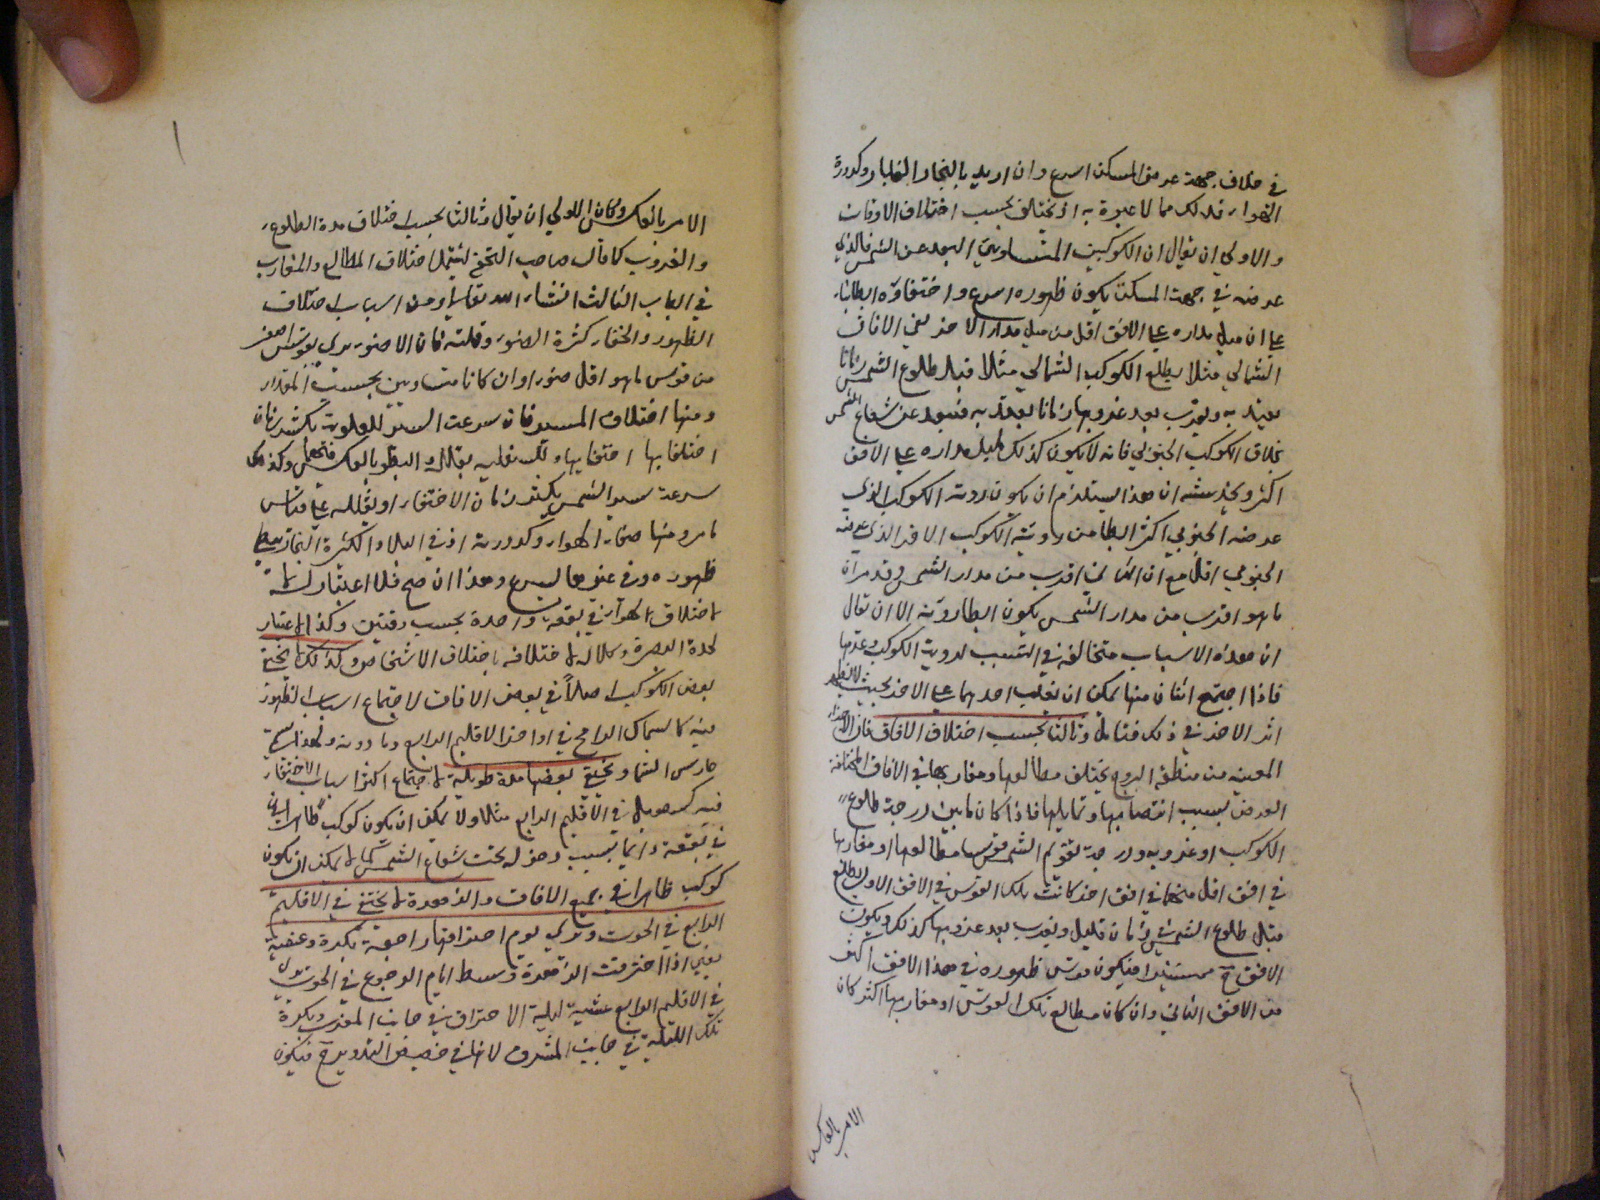 في خلاف جهة عرض المسكن اسرع وان اريد بالبخار الغبار وكدورة
الهواء فذلك مما لا عبرة به اذ يختلف بحسب اختلاف الاوقات
والاولى ان يقال ان الكوكبين المتساويي البعد عن الشمس فالذي
عرضه في جهة المسكن يكون ظهوره اسرع واختفاؤه ابطا بناء
على ان ميل مداره على الافق اقل من ميل مدار الاخر ففي الافاق
الشمالي مثلا يطلع الكوكب الشمالي مثلا قبل طلوع الشمس زمانا
يعتد به ويغرب بعد غروبها زمانا يعتد به فيبعد عن شعاع الشمس
بخلاف الكوكب الجنوبي فانه لا يكون كذلك لميل مداره على الافق
اكثر ويخدشه ان هذا يستلزم ان يكون روية الكوكب الذي
عرضه الجنوبي اكثر ابطا من روية الكوكب الاخر الذي عرضه
الجنوبي اقل مع ان الثاني اقرب من مدار الشمس وقد مر ان
ما هو اقرب من مدار الشمس يكون ابطا روية الا ان يقال
ان هذه الاسباب متخالفة في التسبب لروية الكوكب وعدمها
فاذا اجتمع اثنان منها يمكن ان يغلب احدهما على الاخر بحيث لا يظهر
اثر الاخر في ذلك فتامل وثالثا بحسب اختلاف الافاق فان الاجزاء
المعينة من منطقة البروج يختلف مطالعها ومغاربها في الافاق المختلفة
العروض بسبب انتصابها وتمايلها فاذا كان ما بين درجة طلوع
الكوكب او غروبه ودرجة تقويم الشمس قوس مطالعها او مغاربها
في افق اقل منها في افق اخر كانت تلك القوس في الافق الاول يطلع
قبل طلوع الشمس في زمان قليل ويغرب بعد غروبها كذلك ويكون
الافق ح مستنيرا فيكون قوس ظهوره في هذا الافق اكثر
من الافق الثاني وان كان مطالع تلك القوس او مغاربها اكثر كان
الامر بالعكس
الامر بالعكس وكان الاولى ان يقال وثالثا بحسب اختلاف مدة الطلوع
والغروب كما قال صاحب التحفة ليشمل اختلاف المطالع والمغارب
في الباب الثالث انشاء الله تعالى ومن اسباب اختلاف
الظهور والخفاء كثرة الضوء وقلته فان الاضوء يرى بقوس اصغر
من قوس ما هو اقل ضوءا وان كانا متساويين بحسب المقدار
ومنها اختلاف المسير فان سرعة السير للعلوية يكثر زمان
اختفايها وللسفليه يقلله والبطو بالعكس فيهما وكذلك
سرعة سير الشمس يكثر زمان الاختفاء او يقلله على قياس
ما مر ومنها صفاء الهواء وكدورته اذ في البلاد الكثيرة البخار يبطى
ظهوره وفي غيرها يسرع وهذا ان صح فلا اعتبار له
لاختلاف الهواء في بقعة واحدة بحسب وقتين وكذا لا اعتبار
لحدة البصر وكلاله لاختلافه باختلاف الاشخاص وكذلك لا يختفي
بعض الكواكب اصلا في بعض الافاق لاجتماع اسباب الظهور
فيه كالسماك الرامح في اواخر الاقليم الرابع وما دونه ولهذا سمي
حارس السماء ويختفي بعضها مدة طويلة لاجتماع اكثر اسباب الاختفاء
فيه كسهيل في الاقليم الرابع مثلا ولا يمكن ان يكون كوكب ظاهرا
في بقعة دائما بسبب دخوله تحت شعاع الشمس كما لا يمكن ان يكون
كوكب ظاهرا في جميع الافاق والزهرة لا يختفي في الاقليم
الرابع في الحوت وترى يوم احتراقها راجعة بكرة وعشية
يعني اذا احترقت الزهرة وسط ايام الرجوع في الحوت ترى
في الاقليم الرابع عشية ليلة الاحتراق في جانب المغرب وبكرة
تلك الليلة في جانب المشرق لانها في حضيض التدوير ح فيكون